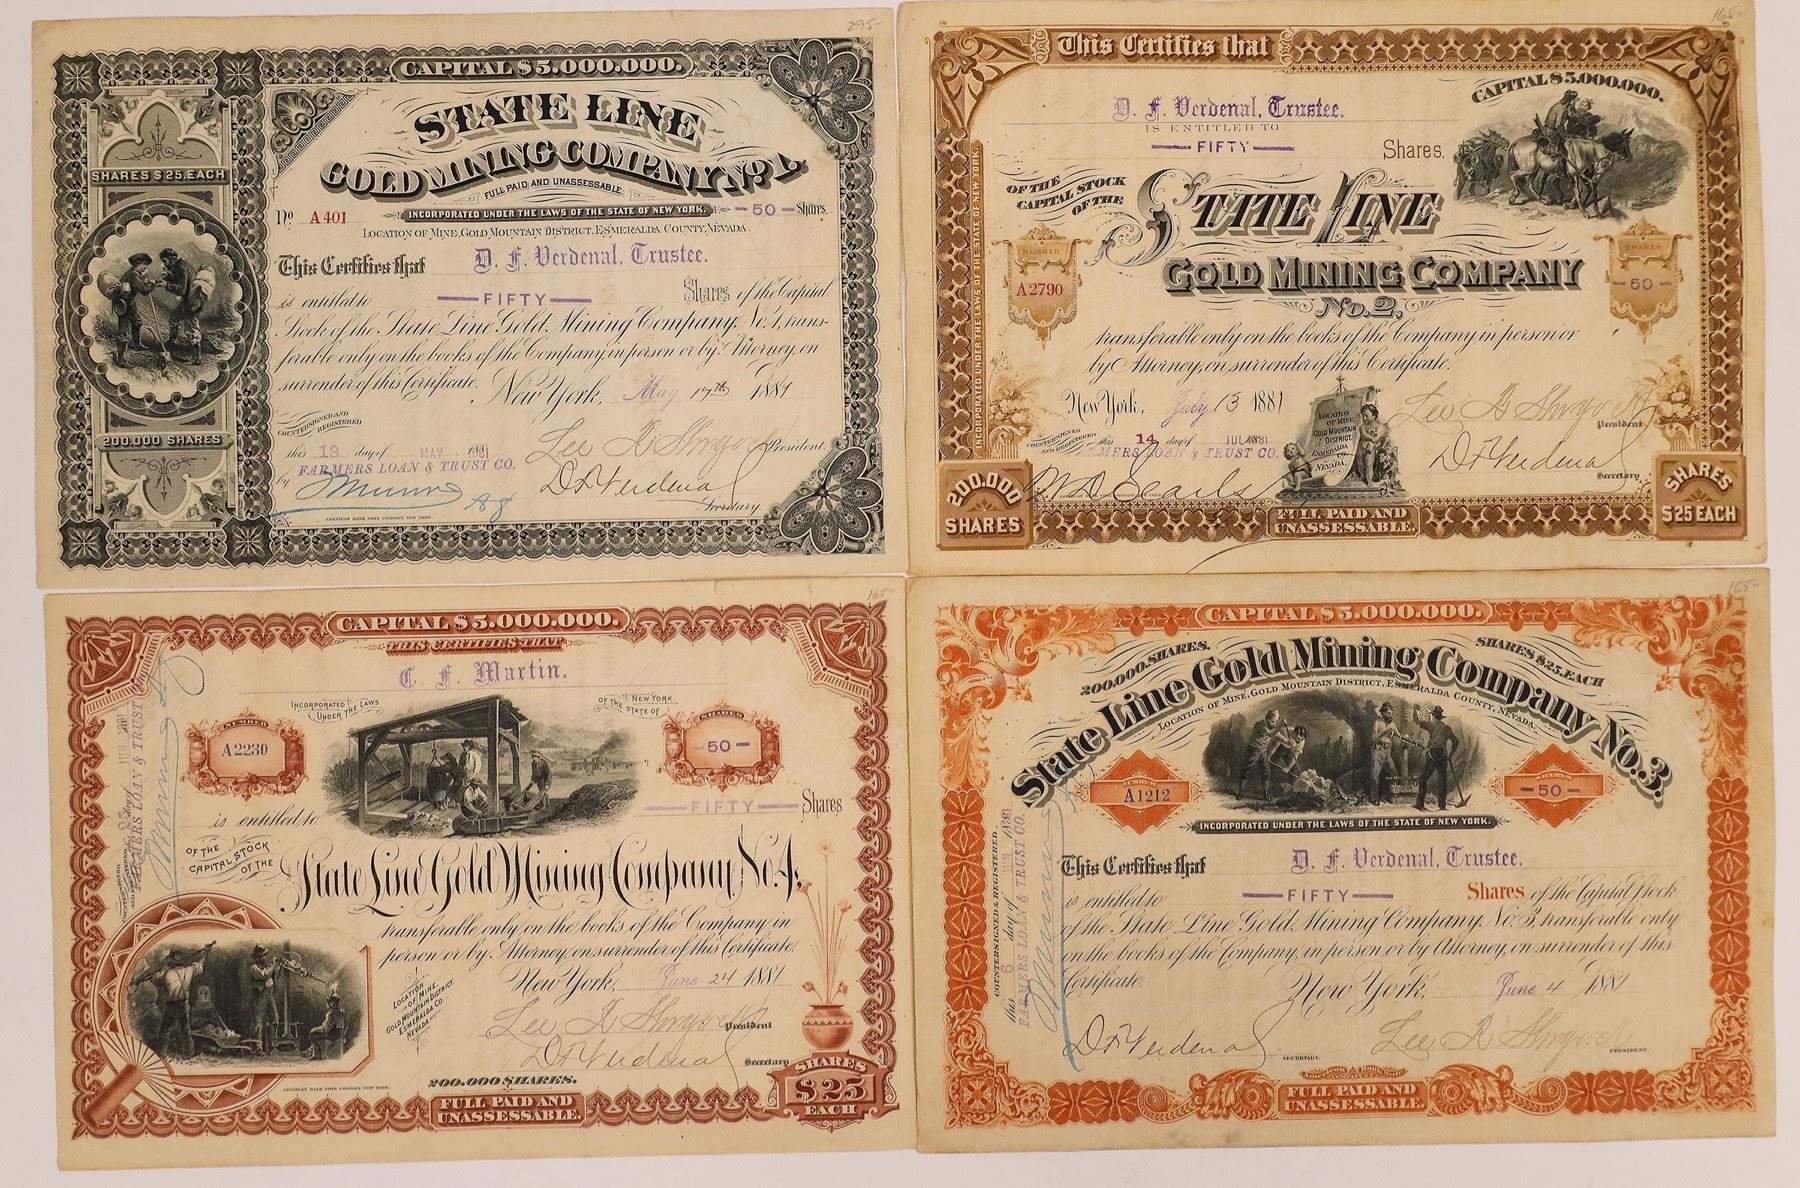 295-
CAPITAL $5.000.000.
STATE LINE
GOLD MINING COMPANY No. 1.
FULL PAID AND UNASSESSABLE.
SHARES $25.EACH
INCORPORATED UNDER THE LAWS OF THE STATE OF NEW YORK.
No A401
- 50 - Shares.
LOCATION OF MINE, GOLD MOUNTAIN DISTRICT, ESMERALDA COUNTY, NEVADA.
This Certifies that D. F. Verdenal, Trustee.
is entitled to FIFTY Shares of the Capital
Stock of the State Line Gold Mining Company No. 1, trans-
ferable only on the books of the Company, in person or by Attorney, on
surrender of this Certificate. New York, May 17th 1881
200.000 SHARES
COUNTERSIGNED AND
REGISTERED
this 18 day of MAY 1881
FARMERS LOAN & TRUST CO.
by
President.
D F Verdenal
Secretary.
AMERICAN BANK NOTE COMPANY NEW YORK
165-
This Certifies that
CAPITAL $5.000.000.
D. F. Verdenal, Trustee.
IS ENTITLED TO
FIFTY Shares.
OF THE
CAPITAL STOCK
OF THE
STATE LINE
GOLD MINING COMPANY
No. 2.
NUMBER
A2790
SHARES
- 50 -
INCORPORATED UNDER THE LAWS OF THE STATE OF NEW YORK.
transferable only on the books of the Company in person or
by Attorney, on surrender of this Certificate.
New York, July 13 1881
COUNTERSIGNED
AND REGISTERED
this 14 day of JUL 1881
FARMERS LOAN & TRUST CO.
LOCATION
OF MINE
GOLD MOUNTAIN
DISTRICT,
ESMERALDA
CO.
NEVADA.
President
D F Verdenal
Secretary
W D Searls
200.000
SHARES
FULL PAID AND
UNASSESSABLE.
SHARES
$25 EACH
165-
CAPITAL $5.000.000.
THIS CERTIFIES THAT
C. F. Martin.
INCORPORATED
UNDER THE LAWS
OF THE STATE OF
NEW YORK.
NUMBER
A2230
SHARES
- 50 -
is entitled to FIFTY Shares
OF THE
CAPITAL STOCK
OF THE
State Line Gold Mining Company No. 4,
transferable only on the books of the Company in
person or by Attorney, on surrender of this Certificate.
New York, June 24 1881
LOCATION
OF MINE
GOLD MOUNTAIN DISTRICT.
ESMERALDA CO.
NEVADA.
President
D F Verdenal
Secretary
COUNTERSIGNED
this 25 day of
FARMERS LOAN & TRUST
AMERICAN BANK NOTE COMPANY NEW YORK
200.000 SHARES.
FULL PAID AND
UNASSESSABLE.
SHARES
$25
EACH
165-
CAPITAL $5.000.000.
200.000.SHARES.
SHARES $25.EACH
State Line Gold Mining Company No. 3.
LOCATION OF MINE, GOLD MOUNTAIN DISTRICT, ESMERALDA COUNTY, NEVADA.
A1212
SHARES
- 50 -
INCORPORATED UNDER THE LAWS OF THE STATE OF NEW YORK.
This Certifies that D. F. Verdenal, Trustee.
is entitled to FIFTY Shares of the Capital Stock
of the State Line Gold Mining Company No. 3, transferable only
on the books of the Company, in person or by Attorney, on surrender of this
Certificate. New York, June 4 1881
COUNTERSIGNED & REGISTERED.
this 6 day of JUN 1881
FARMERS LOAN & TRUST CO.
D F Verdenal
SECRETARY.
PRESIDENT.
FULL PAID AND
UNASSESSABLE.